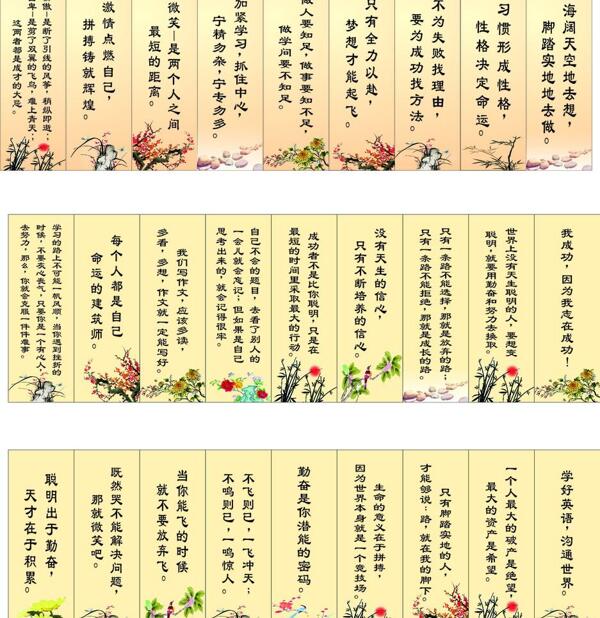 海阔天空地去想，
脚踏实地地去做。
习惯形成性格，
性格决定命运。
不为失败找理由，
要为成功找方法。
只有全力以赴，
梦想才能起飞。
做人要知足，做事要知不足，
做学问要不知足。
加紧学习，抓住中心，
宁精勿杂，宁专勿多。
微笑—是两个人之间
最短的距离。
激情点燃自己，
拼搏铸就辉煌。
傲—是断了引线的风筝，稍纵即逝；
卑—是剪了双翼的飞鸟，难上青天；
这两者都是成才的大忌。
我成功，因为我志在成功！
世界上没有天生聪明的人，要想变
聪明，就要用勤奋和努力去换取。
只有一条路不能选择，那就是放弃的路；
只有一条路不能拒绝，那就是成长的路。
没有天生的信心，
只有不断培养的信心。
成功者不是比你聪明，只是在
最短的时间里采取最大的行动。
自己不会的题目，去看了别人的
一会儿就会忘记；但如果是自己
思考出来的，就会记得很牢。
我们写作文，应该多读，
多看，多想，作文就一定能写好。
每个人都是自己
命运的建筑师。
学习的路上不可能一帆风顺，当你遇到挫折的
时候，不要灰心丧气，只要你是一个有心人，
去努力，那么，你就会克服一件件难事。
学好英语，沟通世界。
一个人最大的破产是绝望，
最大的资产是希望。
只有脚踏实地的人，
才能够说：路，就在我的脚下。
生命的意义在于拼搏，
因为世界本身就是一个竞技场。
勤奋是你潜能的密码。
不飞则已，一飞冲天；
不鸣则已，一鸣惊人。
当你能飞的时候
就不要放弃飞。
既然哭不能解决问题，
那就微笑吧。
聪明出于勤奋，
天才在于积累。